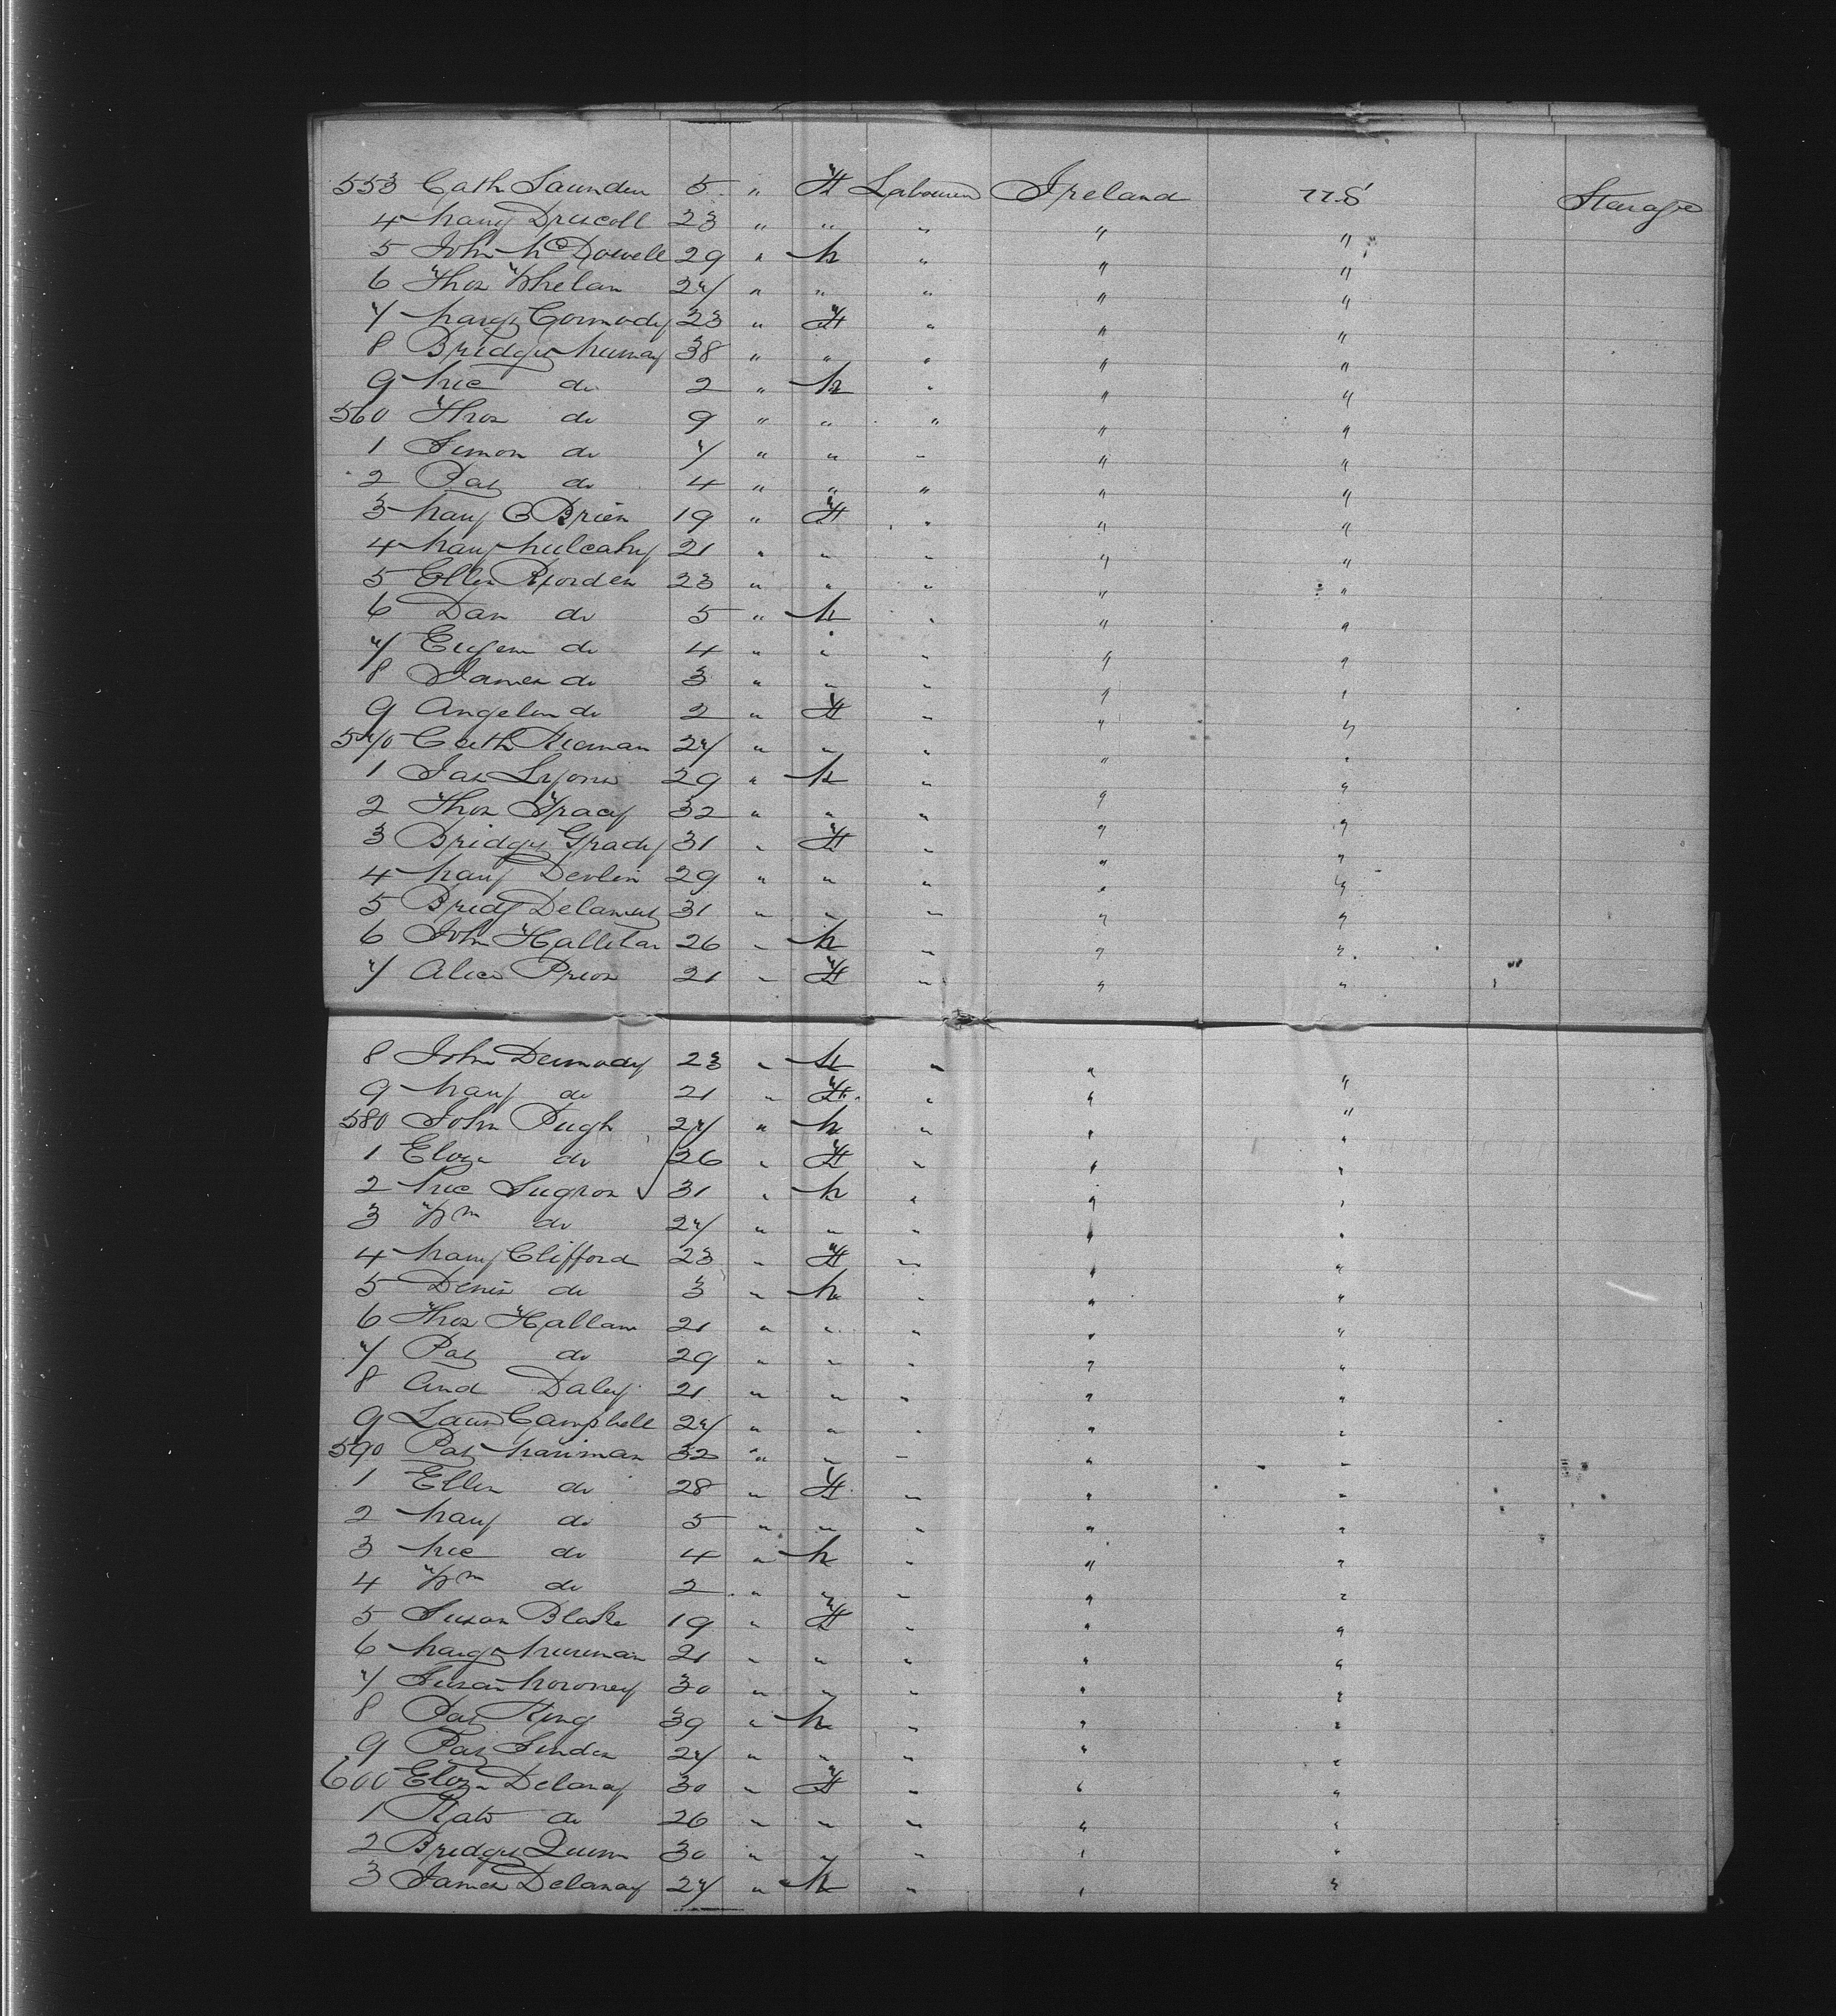 553 Cath Saunders 5 " F Labourer Ireland U.S Steerage
4 Mary Driscoll 23 " " " " "
5 John McDowell 29 " M " " "
6 Thos Whelan 27 " " " " "
7 Margt Cormody 23 " F " " "
8 Bridget Murray 38 " " " " "
9 Mic do 2 " M " " "
560 Thos do 9 " " " " "
1 Simon do 7 " " " " "
2 Pat do 4 " " " " "
3 Mary O Brien 19 " F " " "
4 Mary Mulcahy 21 " " " " "
5 Ellen Riorden 23 " " " " "
6 Dan do 5 " M " " "
7 Eugene do 4 " " " " "
8 James do 3 " " " " "
9 Angelin do 2 " F " " "
570 Cath Kiernan 27 " " " " "
1 Jas Lyons 29 " M " " "
2 Thos Tracy 32 " " " " "
3 Bridget Grady 31 " F " " "
4 Mary Devlin 29 " " " " "
5 Bridt 31 " " " " "
6 John Halletan 26 " M " " "
7 Alice Prior 21 " F " " "
8 John Dermody 23 " M " " "
9 Mary do 21 " F " " "
580 John Pugh 27 " M " " "
1 Eliza do 26 " F " " "
2 Mic 31 " M " " "
3 Wm do 27 " " " " "
4 Mary Clifford 23 " F " " "
5 Denis do 3 " M " " "
6 Thos Hallam 21 " " " " "
7 Pat do 29 " " " " "
8 And Daley 21 " " " " "
9 Laur Campbell 27 " " " " "
590 Pat Mariman 32 " " " " "
1 Ellen do 28 " F " " "
2 Mary do 5 " " " " "
3 Mic do 4 " M " " "
4 Wm do 2 " " " " "
5 Susan Blake 19 " F " " "
6 Margt 21 " " " " "
7 Susan Moroney 30 " " " " "
8 Pat King 39 " M " " "
9 Pat 27 " " " " "
600 Eliza Delaney 30 " F " " "
1 Kate do 26 " " " " "
2 Bridget Quinn 30 " " " " "
3 James Delaney 27 " M " " "